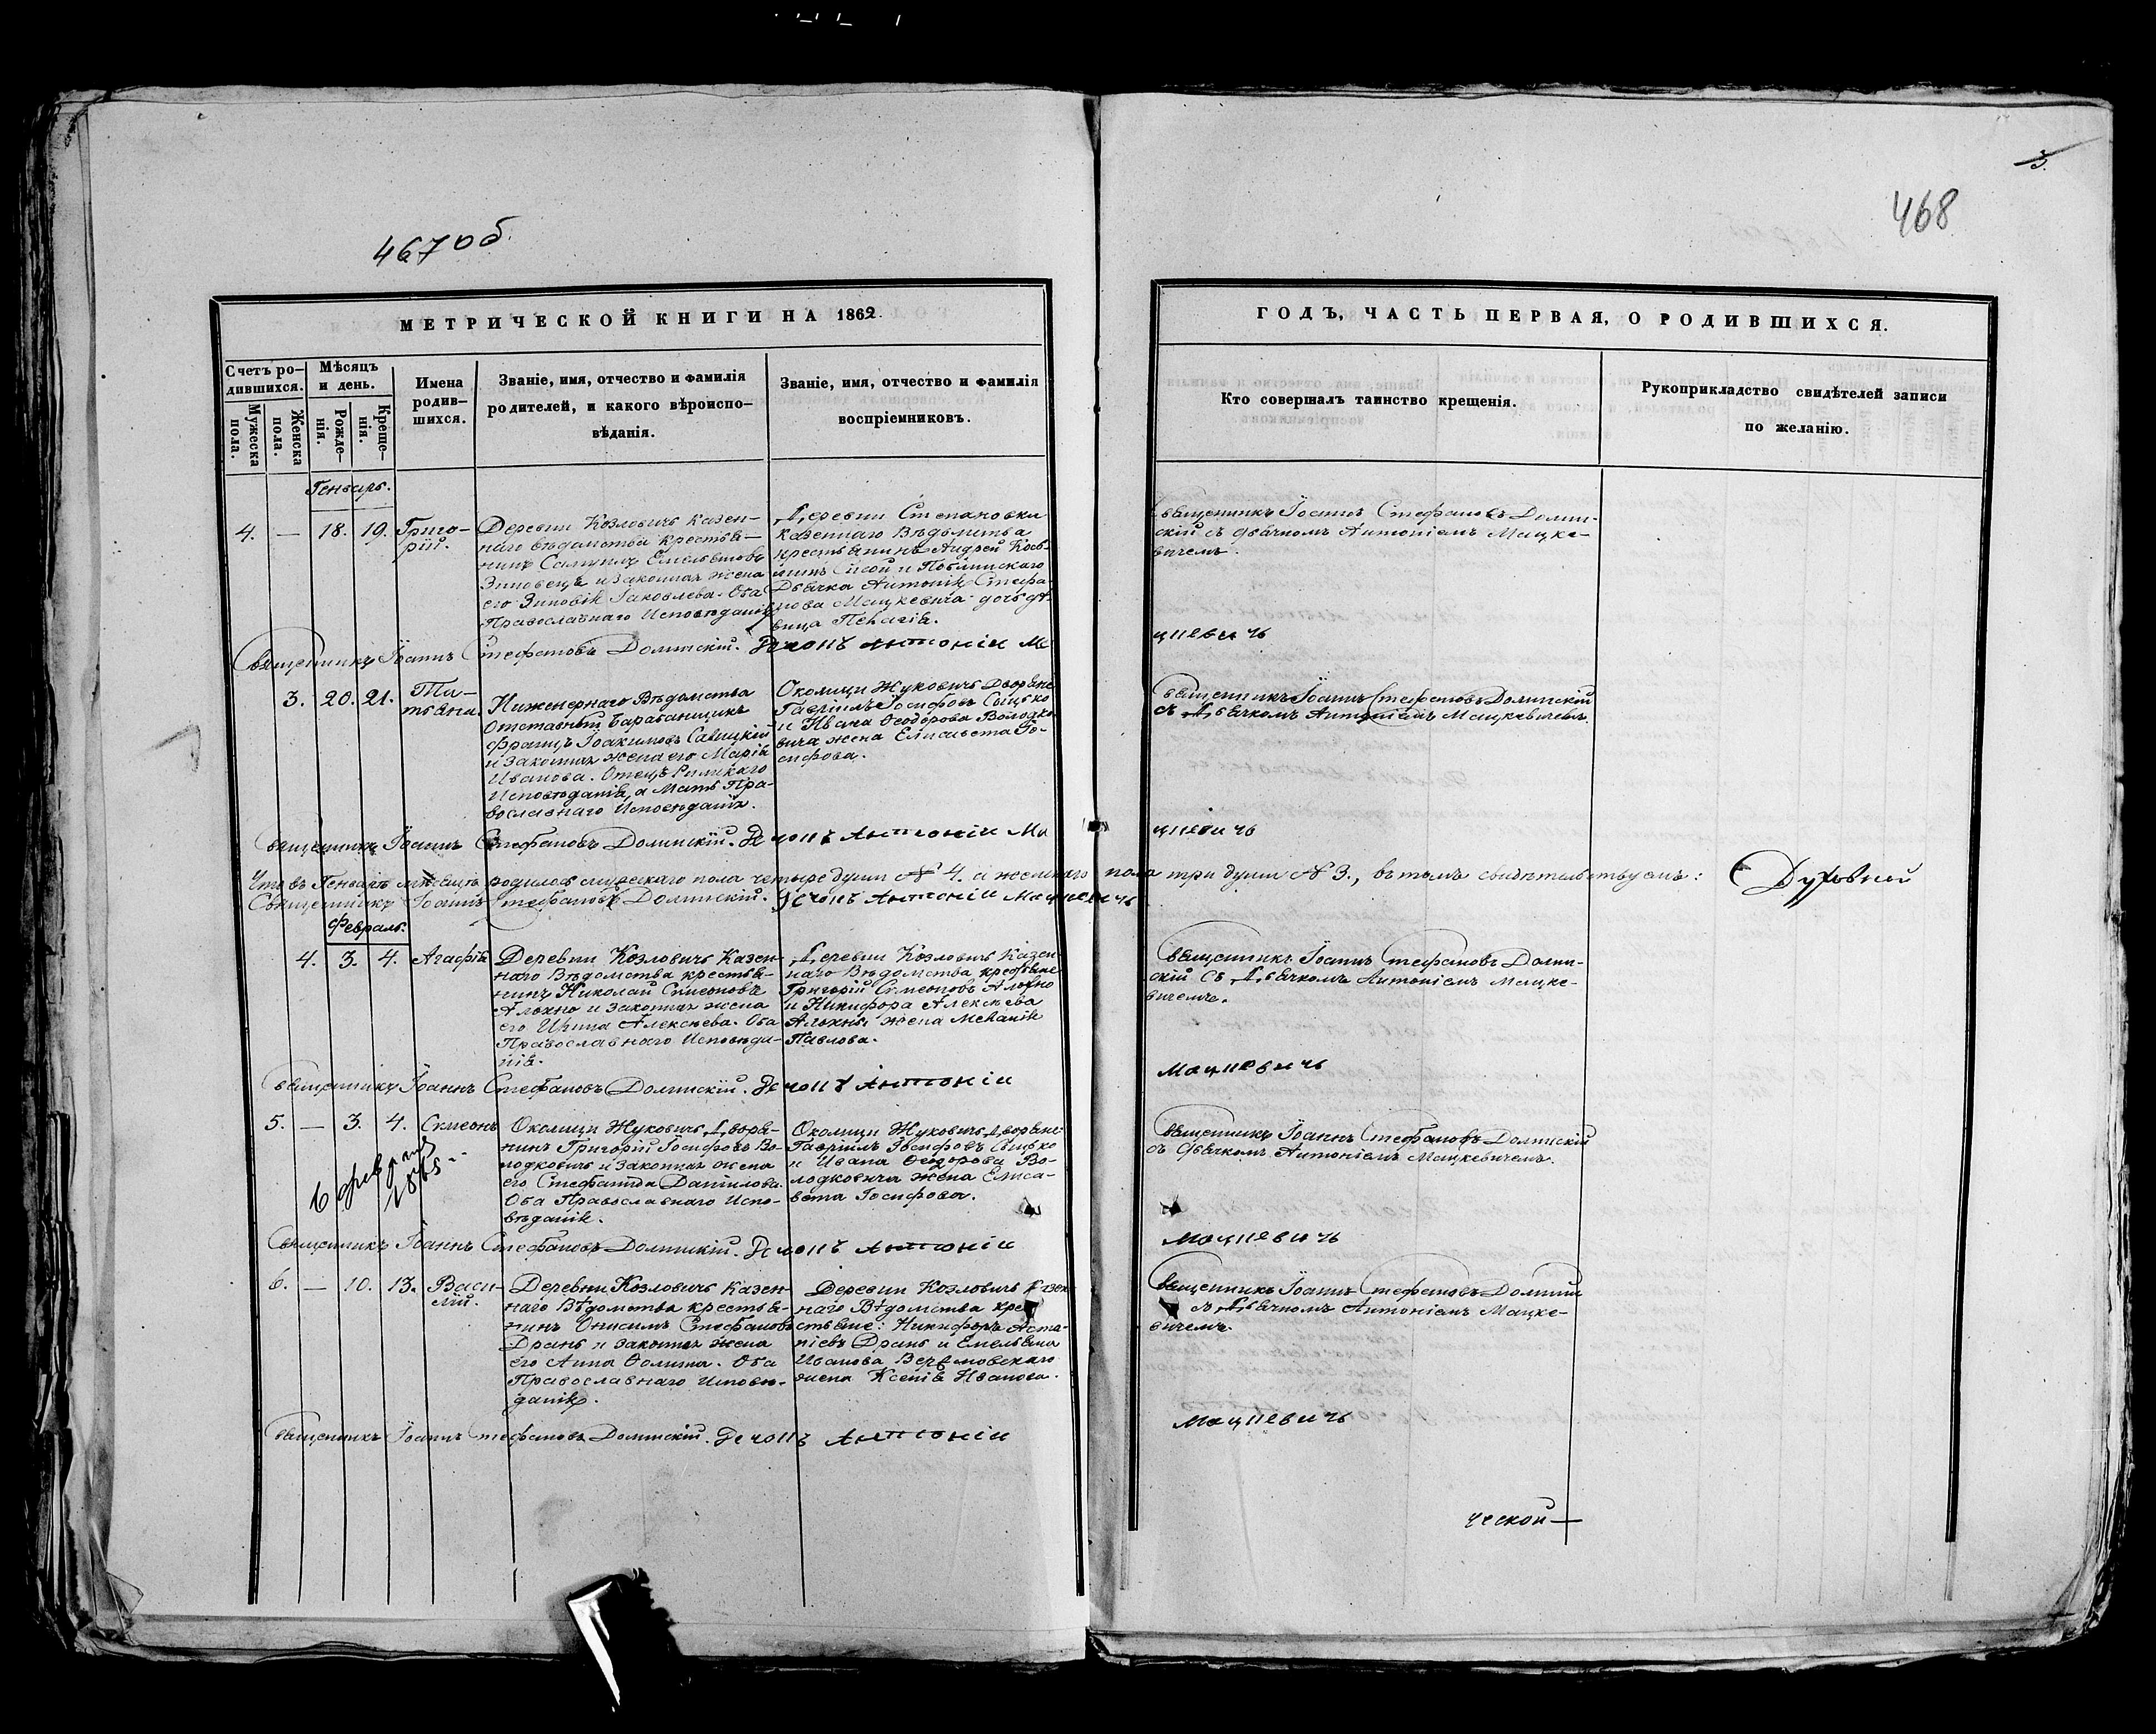 3.
468
467об.
МЕТРИЧЕСКОЙ КНИГИ НА 1862
ГОДЪ, ЧАСТЬ ПЕРВАЯ, О РОДИВШИХСЯ.
Счетъ ро-
дившихся.
Мужеска пола.
Женска пола.
Мѣсяцъ
и день.
Рожде-
нія.
Креще-
нія.
Имена
родив-
шихся.
Званіе, имя, отчество и фамилія
родителей, и какого вѣроиспо-
вѣданія.
Званіе, имя, отчество и фамилія
воспріемниковъ.
Кто совершалъ таинство крещенія.
Рукоприкладство свидѣтелей записи
по желанію.
Генварь.
4. — 18. 19. Григо-
рій.
Деревни Козловичь казен-
наго вѣдомства крестья-
нинъ Самуилъ Емельяновъ
Зиновецъ и законная жена
его Зиновія Іаковлева. Оба
Православнаго Исповѣданія
Деревни Степановки
казеннаго Вѣдомства
крестьянинъ Андрей
и
Дьячка Антонія Стефа-
нова Мацкевича дочь дѣ-
вица Пелагія.
Священникъ Іоаннъ Стефановъ Долин-
скій съ дьячкомъ Антоніемъ Мацке-
вичемъ.
Священникъ Іоаннъ Стефановъ Долинскій. Дечокъ Антоній Ма
цкевичъ
3. 20. 21. Та-
тьяна.
Инженернаго Вѣдомства
Отставный барабанщикъ
Францъ Іоакимовъ Савицкій
и законная жена его Марія
Иванова. Отецъ Римскаго
Исповѣданія, а Мать Пра-
вославнаго Исповѣданія.
Околицы Жуковичь Дворяне
Гавріилъ Іосифовъ Сыцько
и Ивана Ѳеодорова Володко-
вича жена Елисавета Іо-
сифова.
Священникъ Іоаннъ Стефановъ Долинскій
съ Дьячкомъ Антоніемъ Мацкевичемъ.
Священникъ Іоаннъ Стефановъ Долинскій. Дечокъ Антоній Ма
цкевичъ
Что въ Генварѣ мѣсяцѣ родилось мужескаго пола четыре души № 4. а женскаго пола три души № 3., въ томъ свидѣтельствуемъ:
Духовный
Священникъ Іоаннъ Стефановъ Долинскій. Дечокъ Антоній Мацкевичъ
Февраль.
4. 3. 4. Агафія
Деревни Козловичь Казен-
наго Вѣдомства крестья-
нинъ Николай Симеоновъ
Алохно и законная жена
его Ирина Алексѣева. Оба
Православнаго Исповѣда-
нія.
Деревни Козловичь Казен-
наго Вѣдомства крестьяне
Григорій Симеоновъ Алохно
и Никифора Алексѣева
Алохны жена Меланія
Павлова.
Священникъ Іоаннъ Стефановъ Долин-
скій съ Дьячкомъ Антоніемъ Мацке-
вичемъ.
Священникъ Іоаннъ Стефановъ Долинскій. Дечокъ Антоній
Мацкевичъ
5. — 3. 4. Симеонъ
6 февраля
1865
Околицы Жуковичь Дворя-
нинъ Григорій Іосифовъ Во-
лодковичь и законная жена
его Стефанида Даніилова.
Оба Православнаго Испо-
вѣданія.
Околицы Жуковичь Дворяне:
Гавріилъ Іосифовъ Сыцько
и Ивана Ѳеодорова Во-
лодковича жена Елиса-
вета Іосифова.
Священникъ Іоаннъ Стефановъ Долинскій
съ Дьячкомъ Антоніемъ Мацкевичемъ.
Священникъ Іоаннъ Стефановъ Долинскій. Дечокъ Антоній
Мацкевичъ
6. — 10. 13. Васи-
лій.
Деревни Козловичь Казен-
наго Вѣдомства крестья-
нинъ Онисимъ Стефановъ
Дранъ и законная жена
его Анна Фомина. Оба
Православнаго Исповѣ-
данія.
Деревни Козловичь Казен-
наго Вѣдомства кре-
стьяне: Никифоръ Аста-
піевъ Дранъ и Емельяна
Иванова
жена Ксенія Иванова.
Священникъ Іоаннъ Стефановъ Долинскій
съ Дьячкомъ Антоніемъ Мацке-
вичемъ.
Священникъ Іоаннъ Стефановъ Долинскій. Дечокъ Антоній
Мацкевичъ
ческой